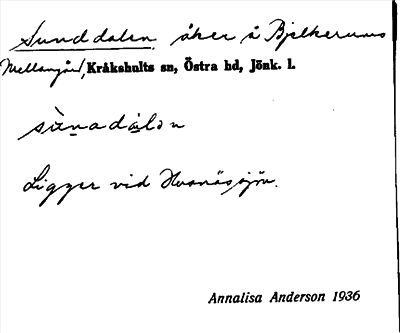 Sunddalen, åker å Bjelkerums
Mellangård, Kråkshults sn, Östra hd, Jönk. l.
sùnadàlən
Ligger vid Hvanässjön.
Annalisa Anderson 1936